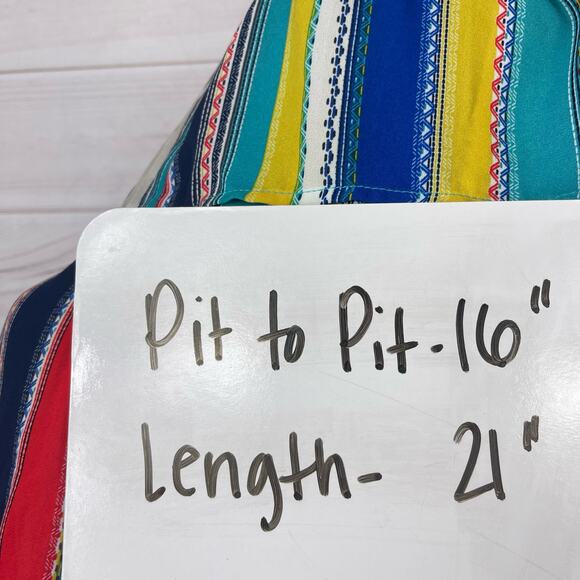 Pit to Pit-16"
Length- 21"